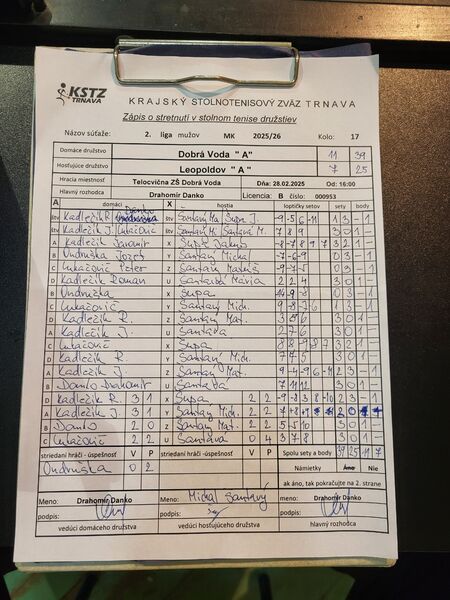 KSTZ
TRNAVA
KRAJSKÝ STOLNOTENISOVÝ ZVÄZ TRNAVA
Zápis o stretnutí v stolnom tenise družstiev
Názov súťaže: 2. liga mužov MK 2025/26 Kolo: 17
Domáce družstvo Dobrá Voda "A" 11 39
Hosťujúce družstvo Leopoldov "A" 7 25
Hracia miestnosť Telocvičňa ZŠ Dobrá Voda Dňa: 28.02.2025 Od: 16:00
Hlavný rozhodca Drahomír Danko Licencia: B číslo: 000953
A domáci X hostia loptičky setov sety body
Danko
štv Kadlečík R. štv Santavý Ma. Šupa J. -9 -5 6 -11 1 3 - 1
štv Kadlečík J. Lukačovič štv Santavý Mi. Santavá M. 7 8 9 3 0 1 -
A Kadlečík Jaromír X Šupa Jakub 3 2 1 -
B Undruška Jozef Y Santavý Michal -7 -6 -9 0 3 - 1
C Lukačovič Peter Z Santavý Matúš -9 -7 -5 0 3 - 1
D Kadlečík Roman U Santavá Mária 2 2 4 3 0 1 -
B Undruška X Šupa 0 3 - 1
C Lukačovič Y Santavý Mich.
D Kadlečík R. Z Santavý Mat. 3 0 1 -
A Kadlečík J. U Santavá 2 7 6 3 0 1 -
C Lukačovič X Šupa 3 2 1 -
D Kadlečík R. Y Santavý Mich. 7 7 5 3 0 1 -
A Kadlečík J. Z Santavý Mat. -9 -4 9 -6
B Danko Drahomír U Santavá 7 11 12 3 0 1 -
D Kadlečík R. 3 1 X Šupa 2 2 -9 -8 3 8 -10 2 3 - 1
A Kadlečík J. 3 1 Y Santavý Mich. 2 2
B Danko 2 0 Z Santavý Mat. 2 2 5 5 10 3 0 1 -
C Lukačovič 2 2 U Santavá 0 4 3 7 8 3 0 1 -
striedaní hráči - úspešnosť V P striedaní hráči - úspešnosť V P Spolu sety a body 39 25 11 7
Undruška 0 2 Námietky Áno Nie
ak áno, tak pokračujte na 2. strane
Meno: Drahomír Danko Meno: Michal Santavý Meno: Drahomír Danko
podpis: podpis: podpis:
vedúci domáceho družstva vedúci hosťujúceho družstva hlavný rozhodca